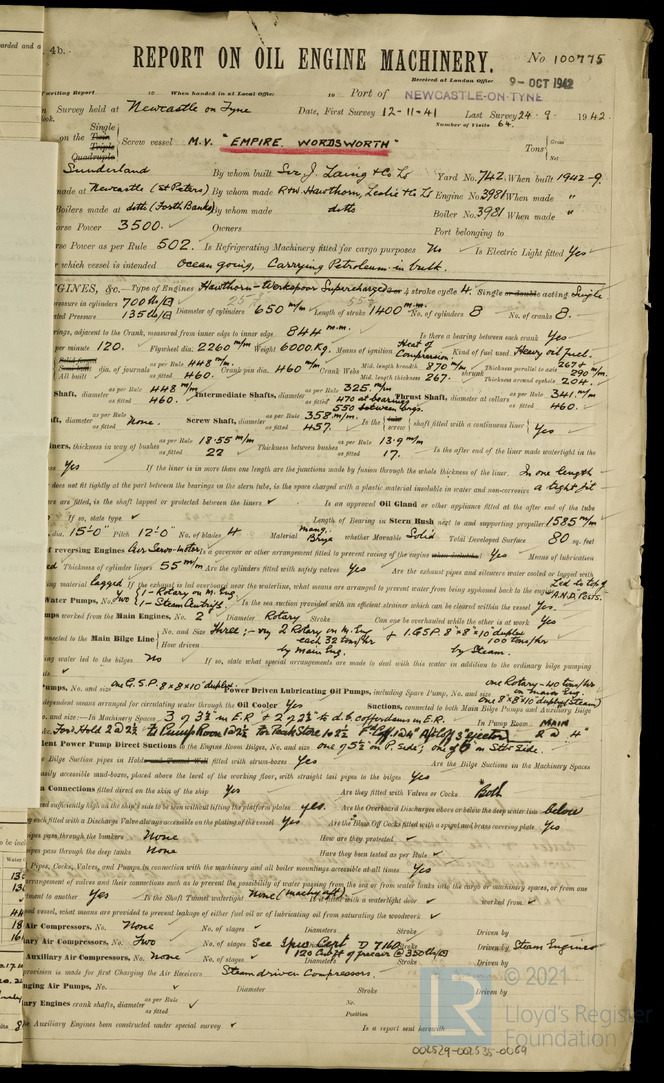 4b.
REPORT ON OIL ENGINE MACHINERY.
No 100775
Received at London Office
9 - OCT 1942
writing Report 19 When handed in at Local Office 19 Port of NEWCASTLE-ON-TYNE
Survey held at Newcastle on Tyne Date, First Survey 12-11-41 Last Survey 24-9- 1942.
Number of Visits 64.
on the Single Twin Triple Quadruple Screw vessel M.V. "EMPIRE WORDSWORTH" Tons Gross Net
Sunderland By whom built Sir J. Laing & Co Ld Yard No. 742. When built 1942-9.
made at Newcastle (St Peters) By whom made R & W. Hawthorn, Leslie & Co Ld Engine No. 3981 When made "
Boilers made at ditto (Forth Banks) By whom made ditto Boiler No. 3981 When made "
orse Power 3500. Owners Port belonging to
rse Power as per Rule 502. Is Refrigerating Machinery fitted for cargo purposes No Is Electric Light fitted Yes
r which vessel is intended Ocean going, Carrying Petroleum in bulk.
NGINES, &c.—Type of Engines Hawthorn-Werkspoor Supercharged 2 or 4 stroke cycle 4. Single or double acting Single
ressure in cylinders 700 lb/□" Diameter of cylinders 650 m/m Length of stroke 1400 m.m. No. of cylinders 8 No. of cranks 8.
ted Pressure 135 lb/□"
rings, adjacent to the Crank, measured from inner edge to inner edge 844 m.m. Is there a bearing between each crank Yes
per minute 120. Flywheel dia. 2260 m/m Weight 6000 Kg. Means of ignition Heat of Compression Kind of fuel used Heavy oil fuel.
Solid forged Semi built All built dia. of journals as per Rule 448 m/m. as fitted 460. Crank pin dia. 460 m/m Crank Webs Mid. length breadth 870 m/m Mid. length thickness 267. shrunk Thickness parallel to axis 267 & 290 m/m. Thickness around eyehole 204.
Shaft, diameter as per Rule 448 m/m as fitted 460. Intermediate Shafts, diameter as per Rule 325. m/m. as fitted 470 at bearings 550 between brgs. Thrust Shaft, diameter at collars as per Rule 341 m/m as fitted 460.
ft, diameter as per Rule as fitted None. Screw Shaft, diameter as per Rule 358 m/m. as fitted 457. Is the screw shaft fitted with a continuous liner Yes
iners, thickness in way of bushes as per Rule 18.55 m/m as fitted 22 Thickness between bushes as per Rule 13.9 m/m as fitted 17. Is the after end of the liner made watertight in the
ss Yes If the liner is in more than one length are the junctions made by fusion through the whole thickness of the liner In one length
does not fit tightly at the part between the bearings in the stern tube, is the space charged with a plastic material insoluble in water and non-corrosive a tight fit
ers are fitted, is the shaft lapped or protected between the liners ✓ Is an approved Oil Gland or other appliance fitted at the after end of the tube
If so, state type ✓ Length of Bearing in Stern Bush next to and supporting propeller 1585 m/m
dia. 15'-0" Pitch 12'-0" No. of blades 4 Material Mang. Bnze whether Moveable Solid Total Developed Surface 80 sq. feet
f reversing Engines Air Servo-motor Is a governor or other arrangement fitted to prevent racing of the engine when declutched Yes Means of lubrication
ed Thickness of cylinder liners 55 m/m Are the cylinders fitted with safety valves Yes Are the exhaust pipes and silencers water cooled or lagged with
ing material lagged If the exhaust is led overboard near the waterline, what means are arranged to prevent water being syphoned back to the engine Led to top of AND. Posts.
Water Pumps, No. Two {1-Rotary on M. Eng. 1-Steam Centrifl. Is the sea suction provided with an efficient strainer which can be cleared within the vessel Yes.
mps worked from the Main Engines, No. 2 Diameter Rotary Stroke Can one be overhauled while the other is at work Yes
nnected to the Main Bilge Line No. and Size Three:- viz 2 Rotary on M. Eng each 32 tons/hr & 1. G.S.P. 8" x 8" x 10" duplex 100 tons/hr
How driven by Main Eng. by Steam.
ing water led to the bilges No If so, state what special arrangements are made to deal with this water in addition to the ordinary bilge pumping
umps, No. and size one G.S.P. 8 x 8 x 10" duplex Power Driven Lubricating Oil Pumps, including Spare Pump, No. and size one Rotary - 40 tons/hr on main Eng. one 8" x 8" x 10" duplex (Steam)
dependent means arranged for circulating water through the Oil Cooler Yes Suctions, connected to both Main Bilge Pumps and Auxiliary Bilge
o. and size:—In Machinery Spaces 3 of 3½ in E.R & 2 of 2½ to d.b. cofferdams in E.R. In Pump Room MAIN 2 @ 4"
&c. Ford Hold 2 @ 2½ to Pump Room 1 @ 2½
ent Power Pump Direct Suctions to the Engine Room Bilges, No. and size one of 5½" on P. Side; one of 8" on Stbd Side.
e Bilge Suction pipes in Holds and Tunnel Well fitted with strum-boxes Yes Are the Bilge Suctions in the Machinery Spaces
asily accessible mud-boxes, placed above the level of the working floor, with straight tail pipes to the bilges Yes
a Connections fitted direct on the skin of the ship Yes Are they fitted with Valves or Cocks Both
ed sufficiently high on the ship's side to be seen without lifting the platform plates yes. Are the Overboard Discharges above or below the deep water line below
y each fitted with a Discharge Valve always accessible on the plating of the vessel Yes Are the Blow Off Cocks fitted with a spigot and brass covering plate Yes
ipes pass through the bunkers None How are they protected ✓
ipes pass through the deep tanks None Have they been tested as per Rule ✓
Pipes, Cocks, Valves, and Pumps in connection with the machinery and all boiler mountings accessible at all times Yes
arrangement of valves and their connections such as to prevent the possibility of water passing from the sea or from water tanks into the cargo or machinery spaces, or from one
tment to another Yes Is the Shaft Tunnel watertight None (machy aft) Is it fitted with a watertight door ✓ worked from ✓
ood vessel, what means are provided to prevent leakage of either fuel oil or of lubricating oil from saturating the woodwork ✓
Air Compressors, No. None No. of stages ✓ Diameters Stroke Driven by
iary Air Compressors, No. Two No. of stages See Spec Cert D 7160 120 Cub ft of free air @ 350 lb/□" Diameters Stroke Driven by Steam Engines
Auxiliary Air Compressors, No. None No. of stages Diameters Stroke Driven by
provision is made for first Charging the Air Receivers Steam driven Compressors.
nging Air Pumps, No. ✓ Diameter Stroke Driven by
iary Engines crank shafts, diameter as per Rule as fitted ✓ No. Position
he Auxiliary Engines been constructed under special survey ✓ Is a report sent herewith
© 2021
LR
Lloyd's Register
Foundation
002529-002535-0069